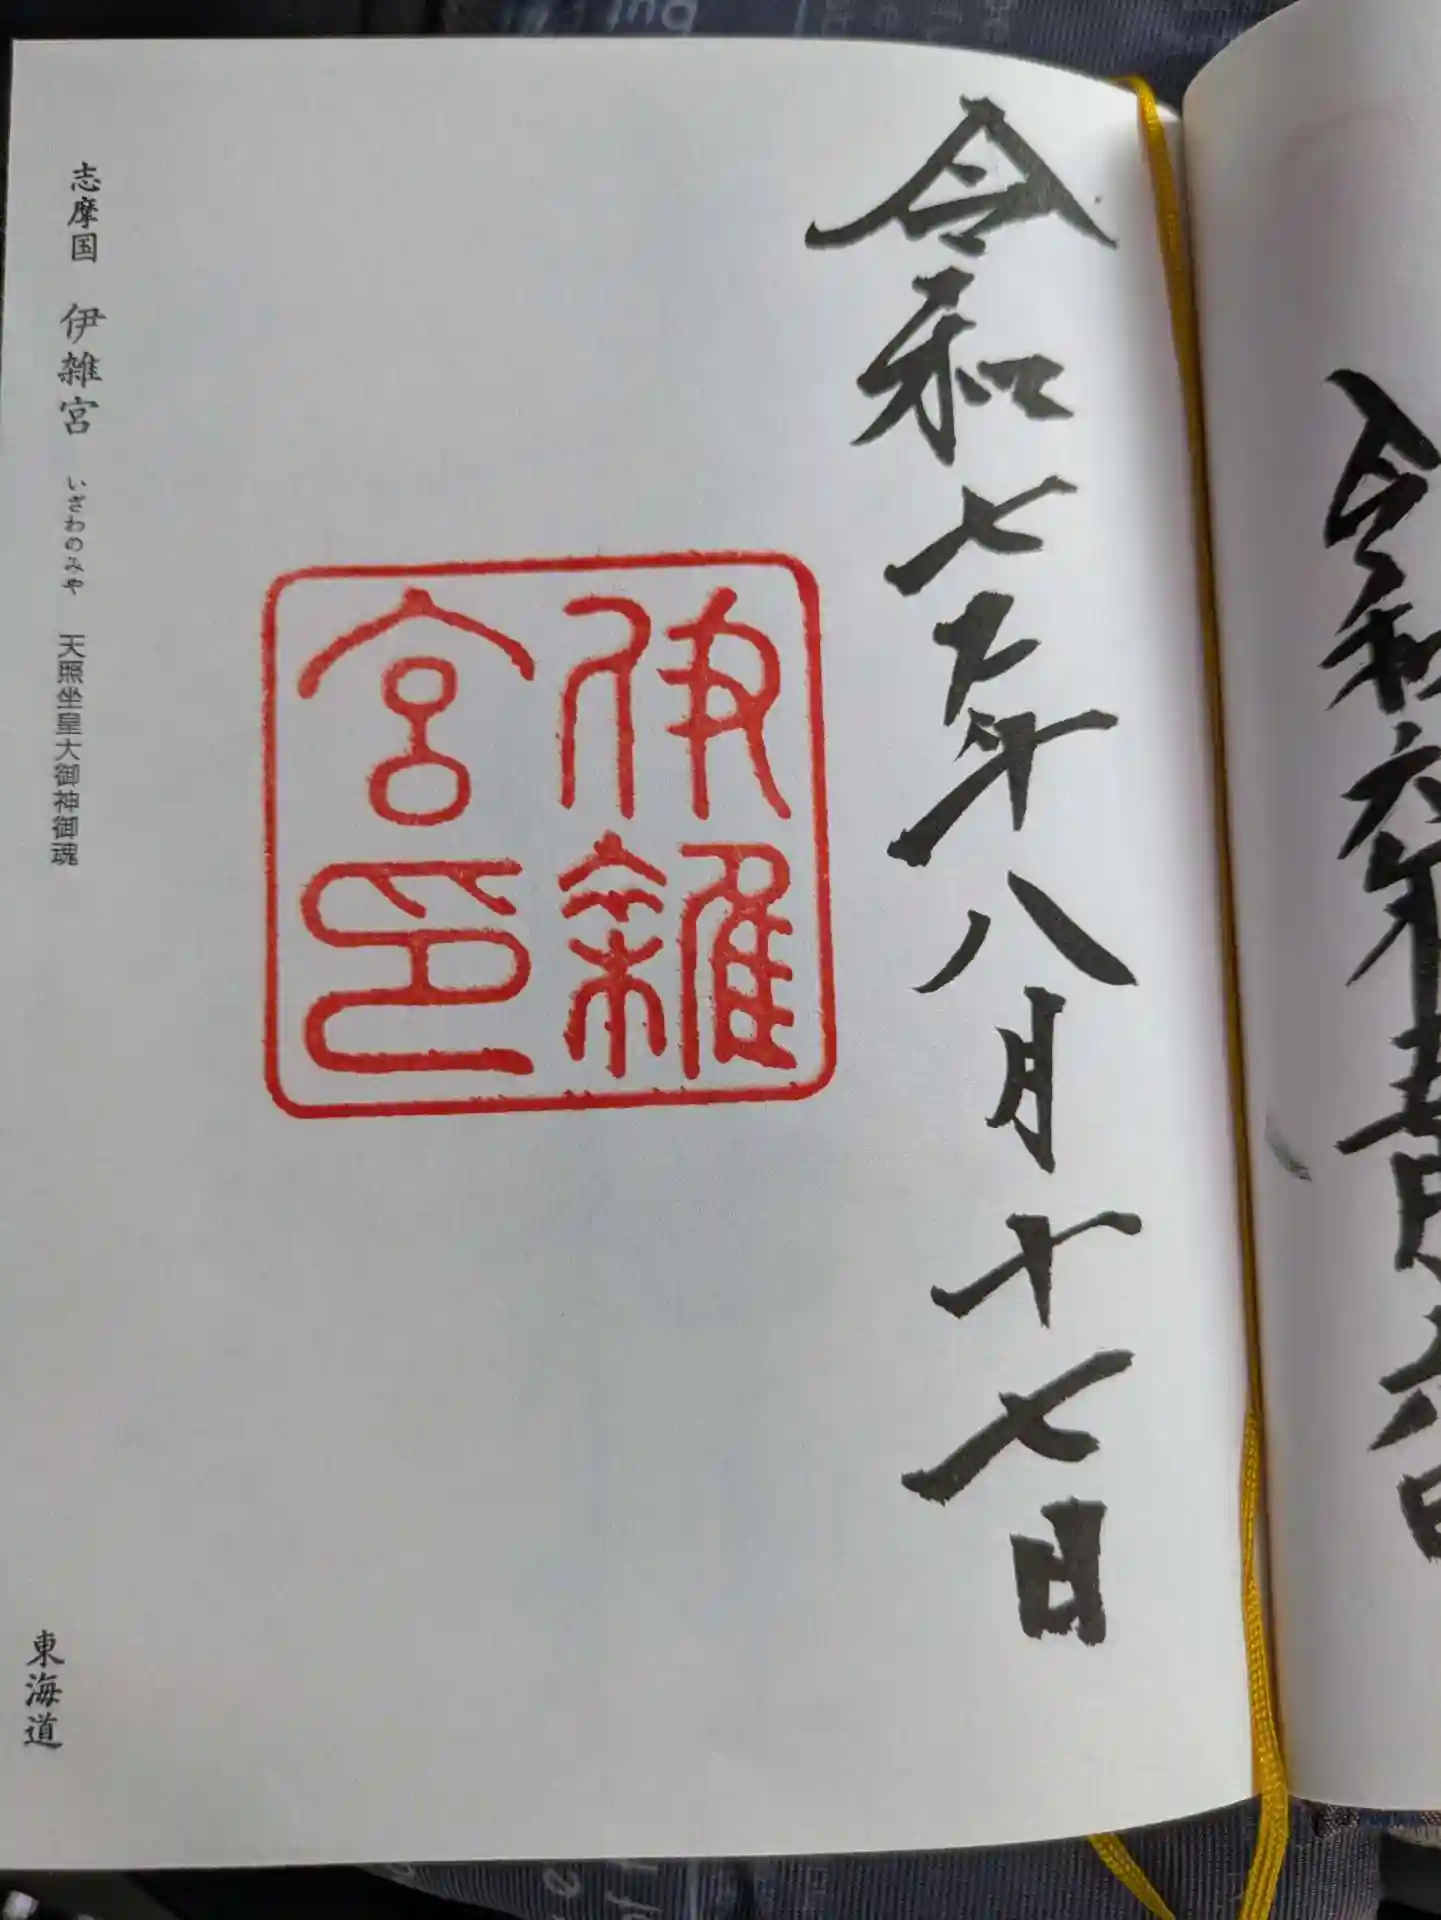 令和六年
六日
令和七年八月十七日
伊雑
宮印
志摩国 伊雑宮 いざわのみや 天照坐皇大御神御魂
東海道